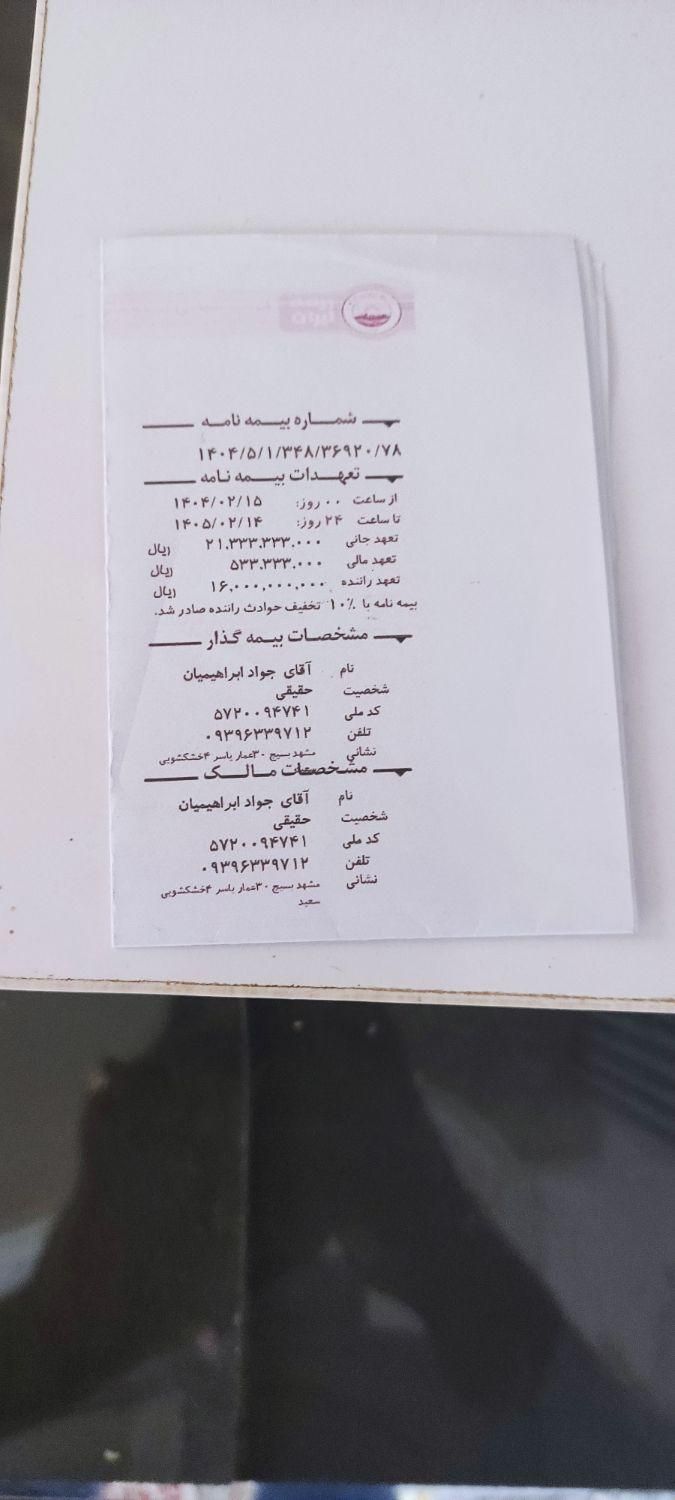 بیمه ایران
شمـــاره بیـــمه نامــه
۱۴۰۴/۵/۱/۳۴۸/۳۶۹۲۰/۷۸
تعهـدات بیـــمه نامه
از ساعت ۰۰ روز: ۱۴۰۴/۰۲/۱۵
تا ساعت ۲۴ روز: ۱۴۰۵/۰۲/۱۴
تعهد جانی ۲۱,۳۳۳,۳۳۳,۰۰۰ ریال
تعهد مالی ۵۳۳,۳۳۳,۰۰۰ ریال
تعهد راننده ۱۶,۰۰۰,۰۰۰,۰۰۰ ریال
بیمه نامه با ۱۰٪ تخفیف حوادث راننده صادر شد.
مشخصـات بیـمه گذار
نام آقای جواد ابراهیمیان
شخصیت حقیقی
کد ملی ۵۷۲۰۰۹۴۷۴۱
تلفن ۰۹۳۹۶۳۳۹۷۱۲
نشانی مشهد بسیج ۳۰عمار یاسر ۴خشکشویی
مشـخصـات مـالـک
نام آقای جواد ابراهیمیان
شخصیت حقیقی
کد ملی ۵۷۲۰۰۹۴۷۴۱
تلفن ۰۹۳۹۶۳۳۹۷۱۲
نشانی مشهد بسیج ۳۰عمار یاسر ۴خشکشویی
سعید